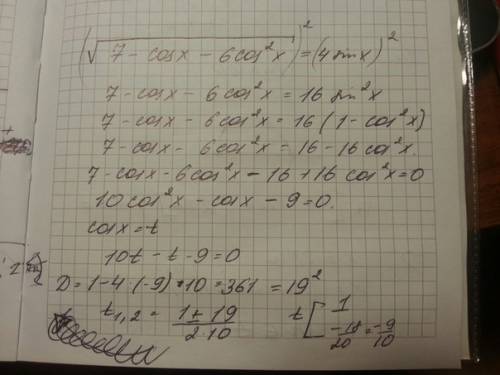 (√7 - cosx - 6cos²x)² = (4sinx)²
7 - cosx - 6cos²x = 16sin²x
7 - cosx - 6cos²x = 16(1 - cos²x)
7 - cosx - 6cos²x = 16 - 16cos²x
7 - cosx - 6cos²x - 16 + 16cos²x = 0
10cos²x - cosx - 9 = 0.
cosx = t
10t - t - 9 = 0
D = 1 - 4·(-9)·10 = 361 = 19²
t₁,₂ = (1 ± 19)/(2·10) t [ 1
-18/20 = -9/10